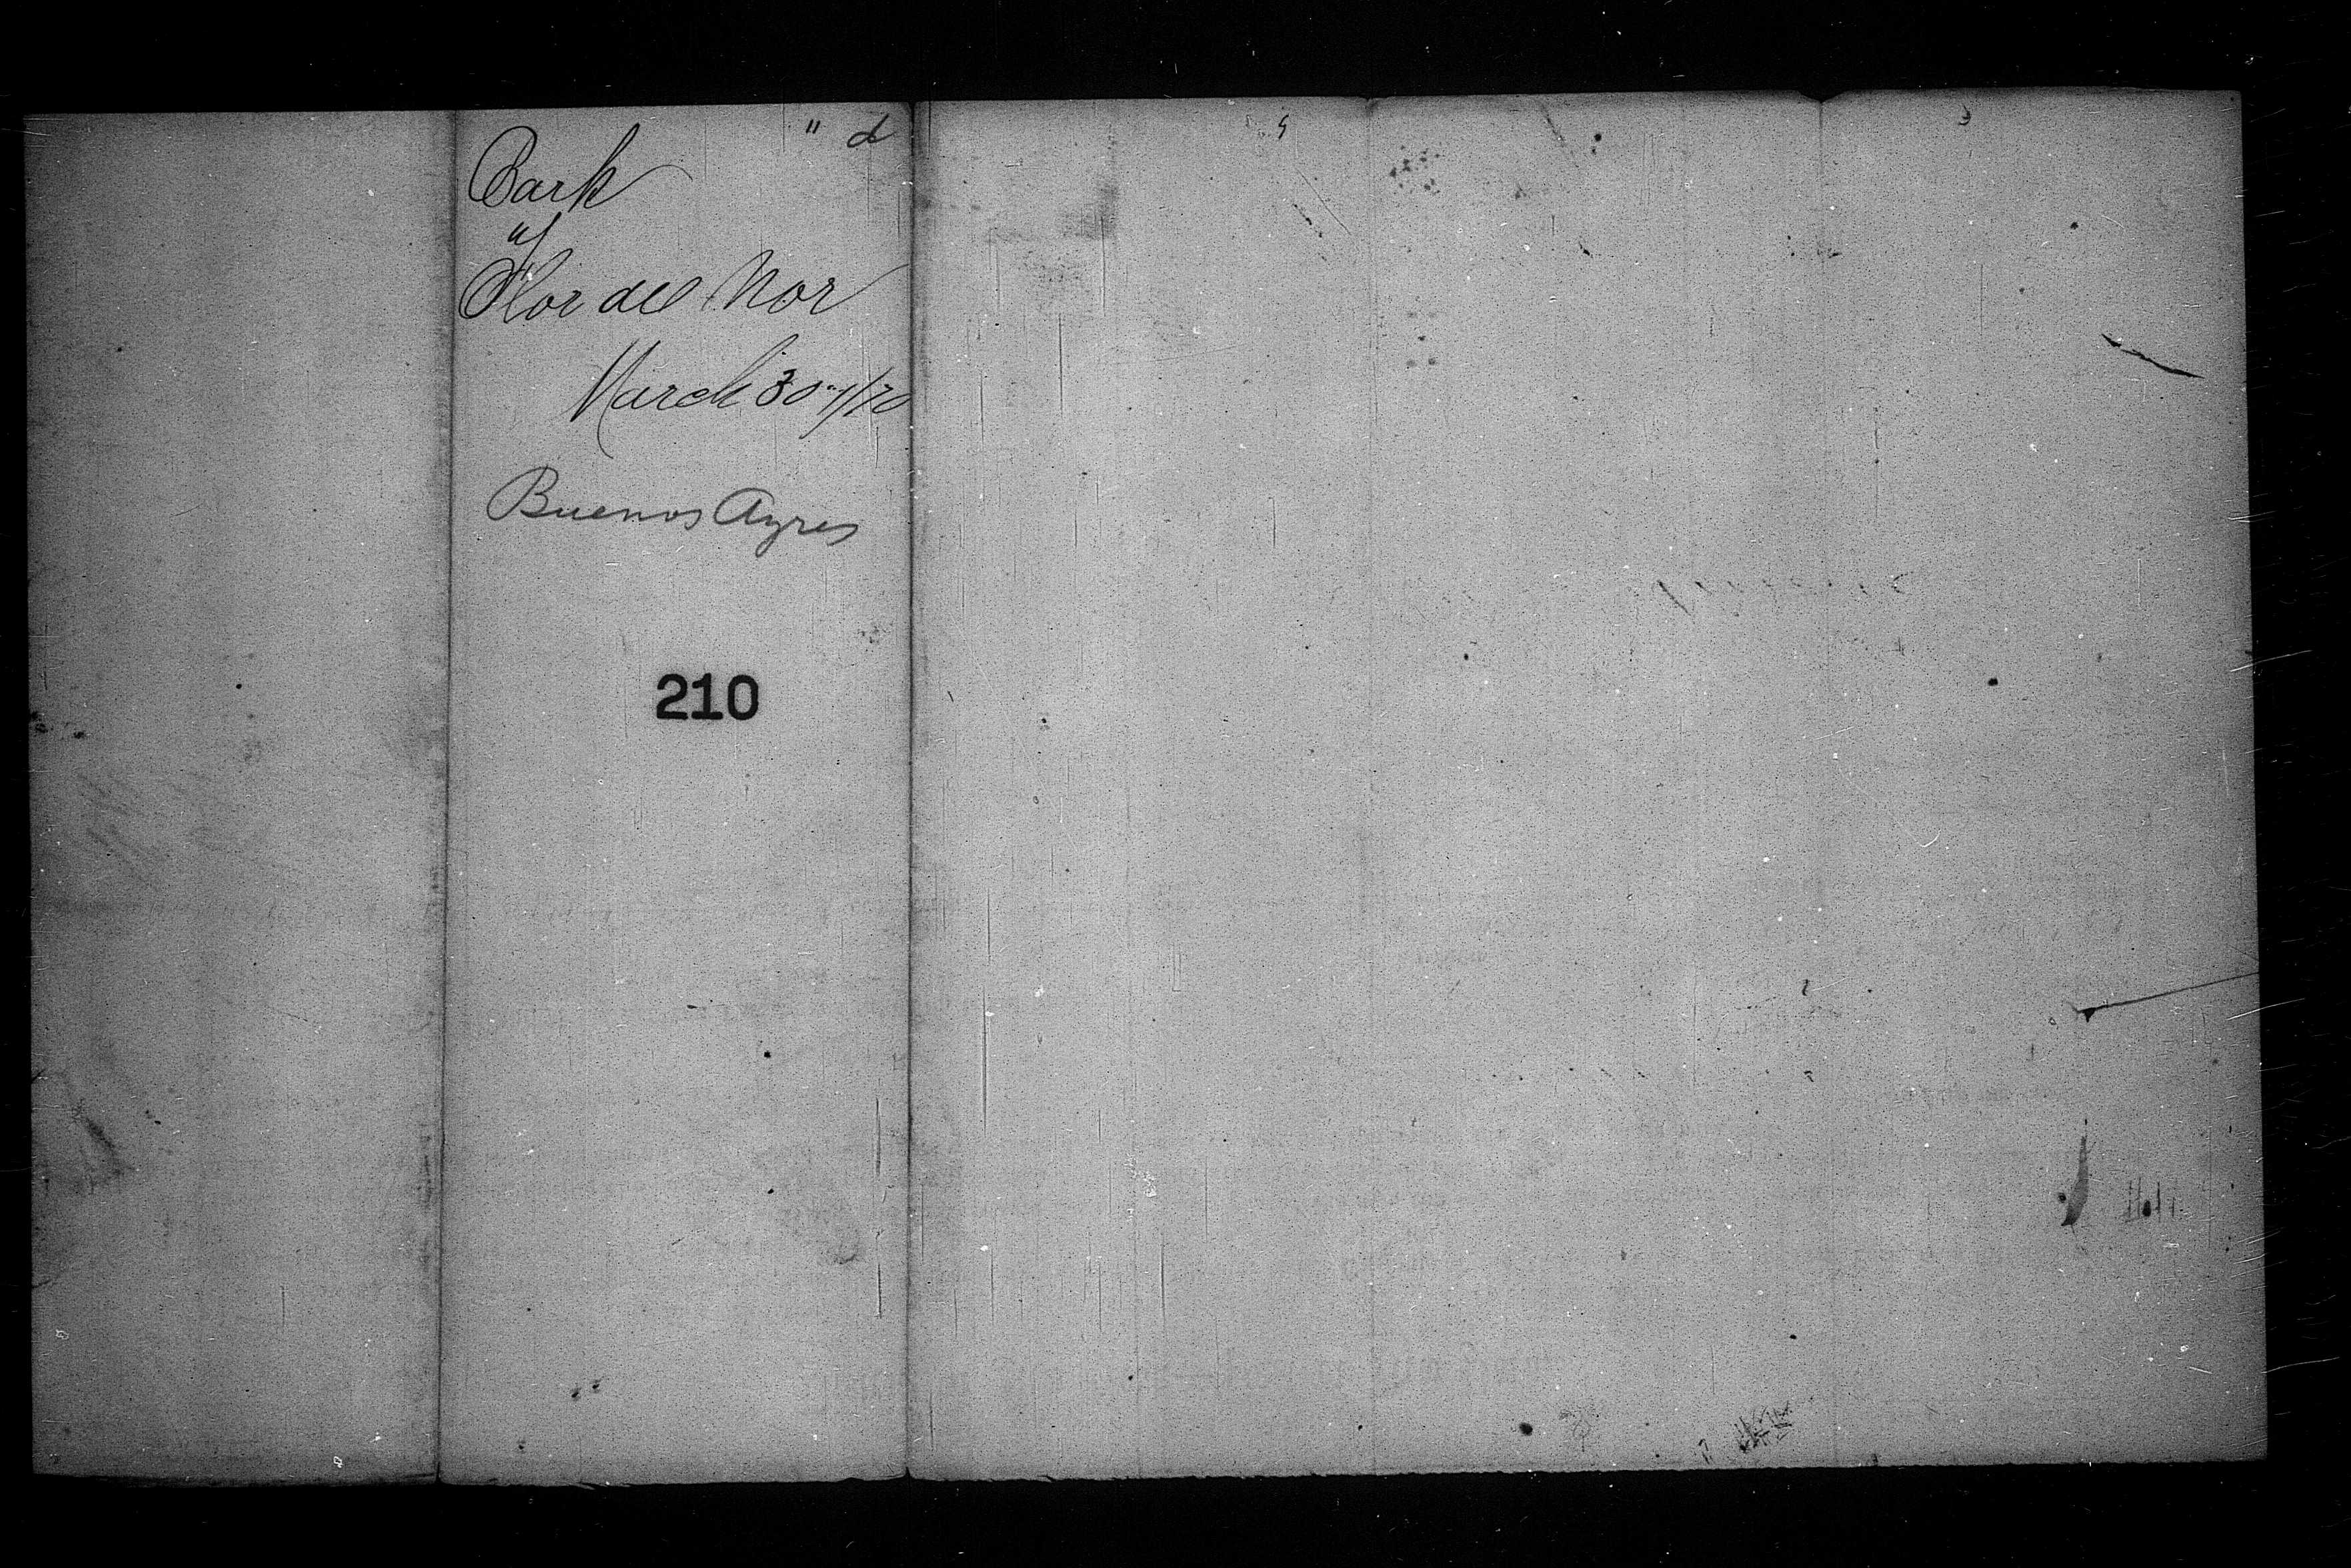 Bark
"Flor del Mar
March 30"/70
Buenos Ayres
210